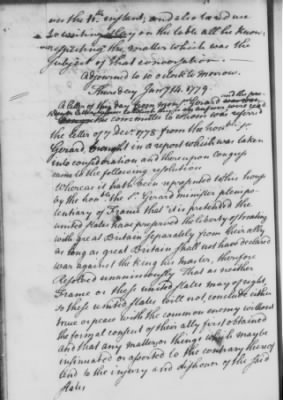 ver the 11th instant, and also laid
in writing on the table all he knew
respecting the matter which was the
subject of that conversation.
Adjourned to 10 o Clock to morrow.
Thursday Jany 14. 1779.
A letter of this day from monr. Gerard
the committee to whom was referred
the letter of 7 decr. 1778 from the honble. Sr.
Gerard, brought in a report which was taken
into consideration and thereupon Congress
came to the following resolution
Whereas it hath been represented to this house
by the honble. the Sr. Gerard minister plenipo-
tentiary of France that "it is pretended the
united states have preserved the liberty of treating
with great Britain separately from their ally
as long as great Britain shall not have declared
war against the king his master, therefore
Resolved unanimously That as neither
France or these united states may of right,
so these united states will not, conclude either
truce or peace with the common enemy without
the formal consent of their ally first obtained
and that any matters or things which may be
insinuated or asserted to the contrary thereof
tend to the injury and dishonor of the said
states